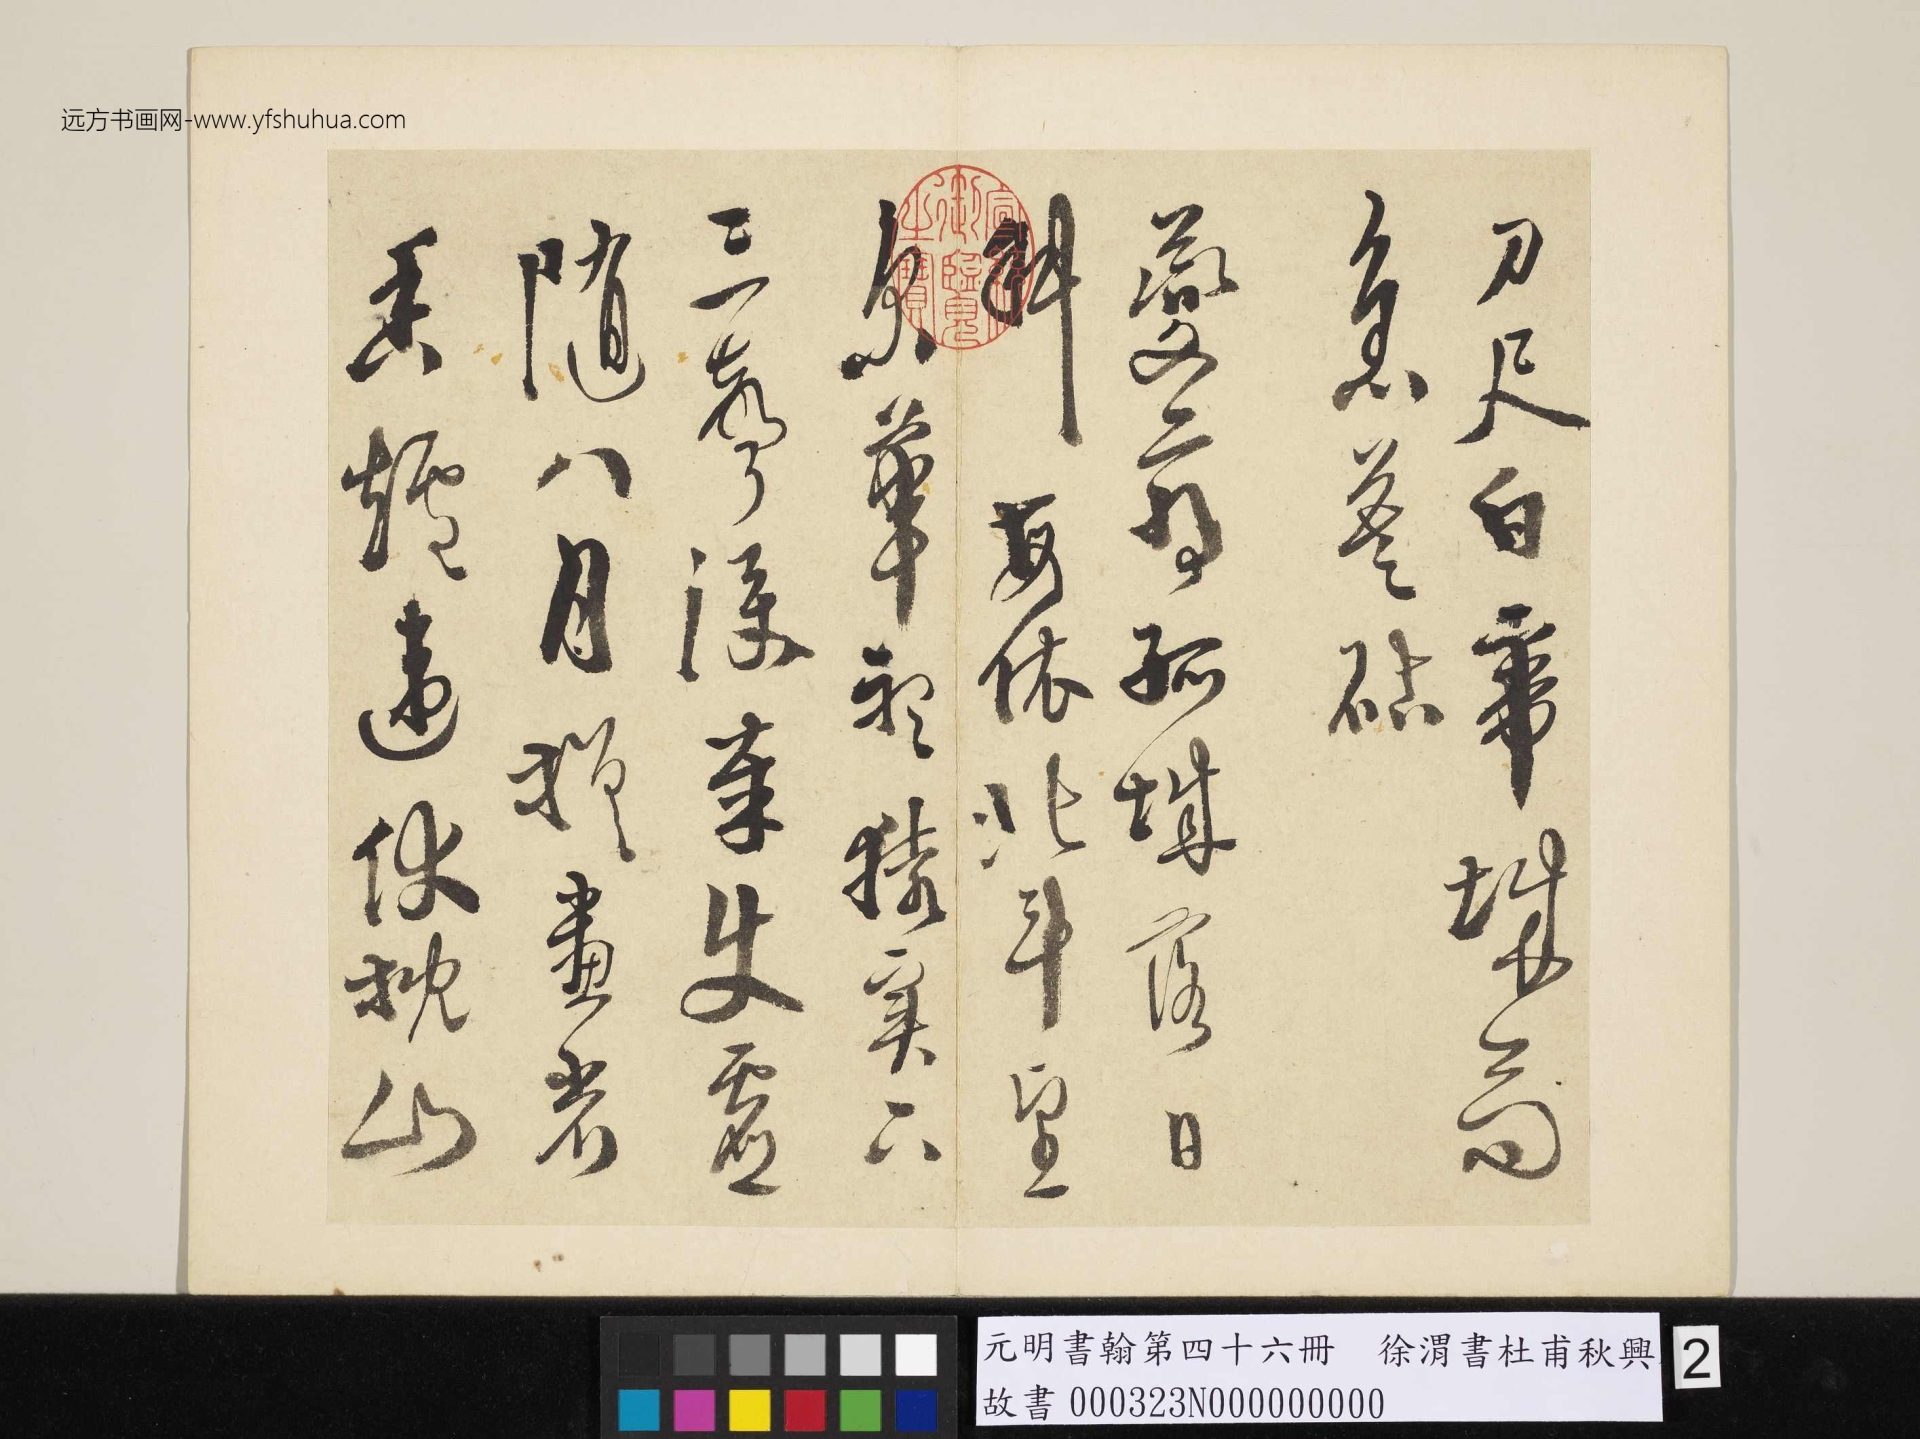 远方书画网-www.yfshuhua.com
刀尺白帝城高
急暮砧
夔府孤城落日
斜每依北斗望
京華聽猿實下
三聲淚奉使虛
隨八月槎畫省
香爐違伏枕山
元明書翰第四十六冊　徐渭書杜甫秋興
故書000323N000000000
2